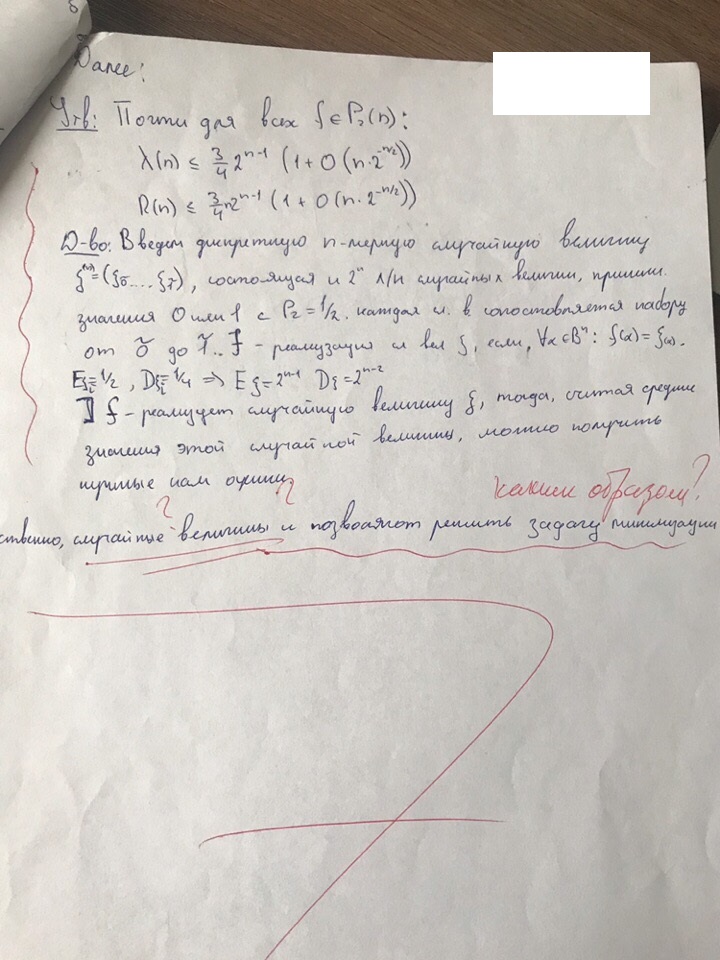 Далее:
Утв: Почти для всех f ∈ P₂(n):
λ(n) ≤ 3/4 2ⁿ⁻¹ (1 + O(n·2^(-n/2)))
R(n) ≤ 3/4 n2ⁿ⁻¹ (1 + O(n·2^(-n/2)))
Д-во: Введем дискретную n-мерную случайную величину
состоящая и 2ⁿ л/н случайных величин,
значения 0 или 1 с P₂ = 1/2. каждая и. в сопоставляется набору
от õ до 1̃.. f - реализация сл вел ξ, если, ∀α∈Bⁿ: f(α) = ξ(α).
Eξᵢ = 1/2, Dξᵢ = 1/4 ⇒ Eξ = 2ⁿ⁻¹ Dξ = 2ⁿ⁻²
f - реализует случайную величину ξ, тогда, считая средние
значения этой случайной величины, можно получить
нужные нам оценки
? ? каким образом?
ственно, случайные величины и позволяют решить задачу минимизации